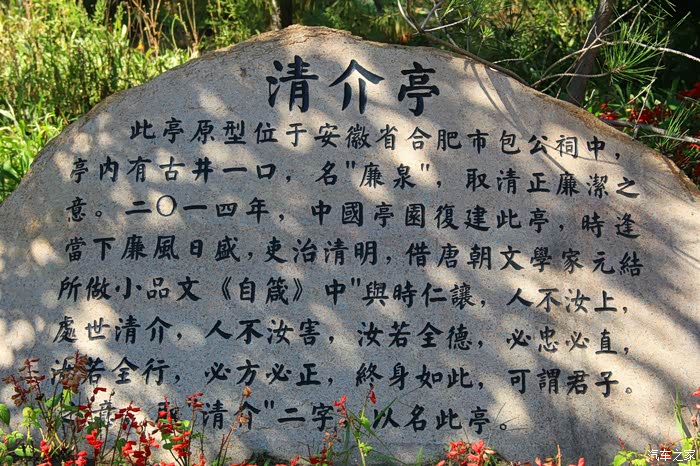 清介亭
此亭原型位于安徽省合肥市包公祠中，
亭内有古井一口，名"廉泉"，取清正廉潔之
意。二〇一四年，中國亭園復建此亭，時逢
當下廉風日盛，吏治清明，借唐朝文學家元結
所做小品文《自箴》中"與時仁讓，人不汝上，
處世清介，人不汝害，汝若全德，必忠必直，
汝若全行，必方必正，終身如此，可謂君子。
意，取清介"二字，以名此亭。
汽车之家